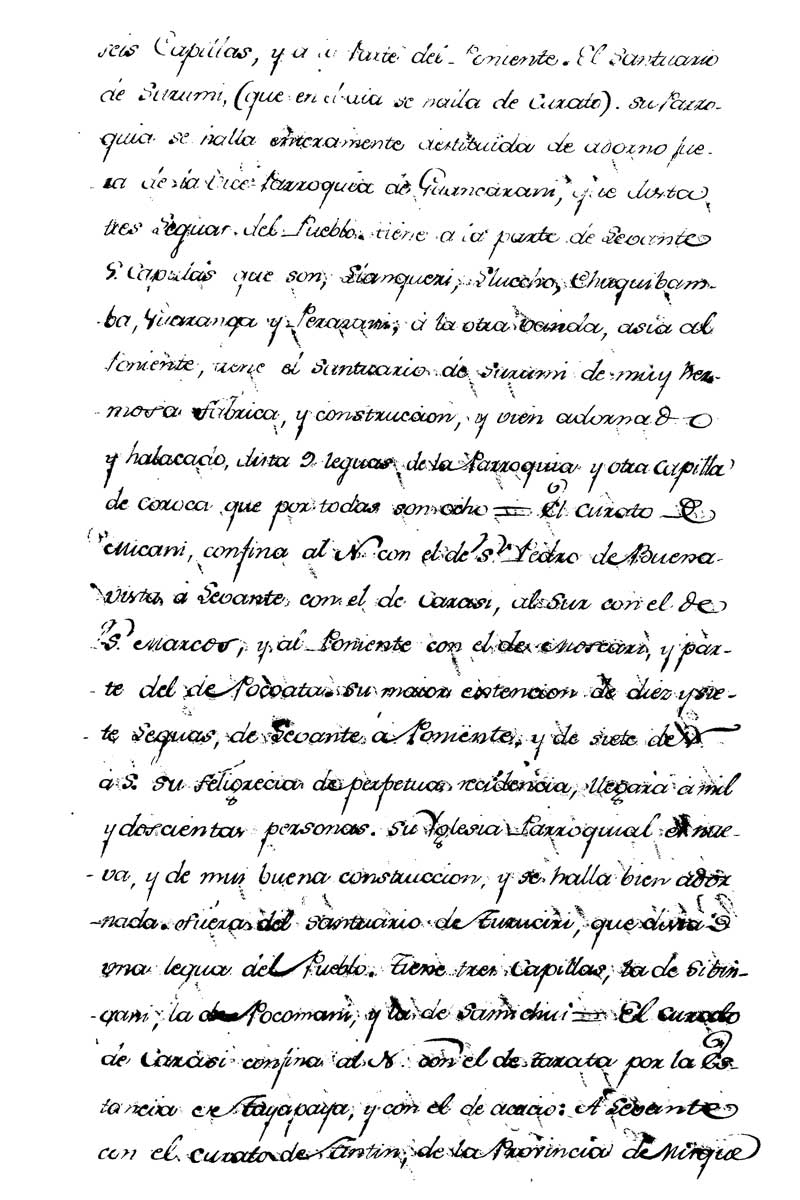 seis Capillas, y a la Parte del Poniente. El Santuario
de Surumi, (que en el dia se halla de Curato). su Parro-
quia se halla enteramente destituida de adorno fue-
ra de la Vice Parroquia de Guancarani, que dista
tres Leguas del Pueblo. tiene a la parte de Levante
5. Capillas que son, Llanqueri, Chequibam-
ba, Guaranga y Perarani, á la otra banda, asia al
Poniente, tiene el santuario de surumi de muy her-
mosa fabrica, y construccion, y vien adornado
y halacado, dista 9 leguas de la Parroquia y otra capilla
de coroca que por todas son ocho = El Curato de
Micani, confina al N. con el de Sn. Pedro de Buena-
vista, a Levante con el de Carasi, al Sur con el de
S. Marcos, y al Poniente con el de Moscari, y par-
te del de Pocoata. su maior estencion de diez y sie-
te Leguas, de Levante á Poniente, y de siete de N
a S. su feligrecia de perpetua recidencia, llegará a mil
y doscientas personas. su Yglesia Parroquial es nue-
va, y de mui buena construccion, y se halla bien ador
nada. fuera del santuario de Turuciri, que dista
una legua del Pueblo. Tiene tres Capillas, la de Sibin-
gani, la de Pocomani, y la de Samichui = El curado
de Carasi confina al N. con el de tarata por la Es-
tancia de Tayapaya, y con el de acacio: A Levante
con el curato de Tintin, de la Provincia de Misque